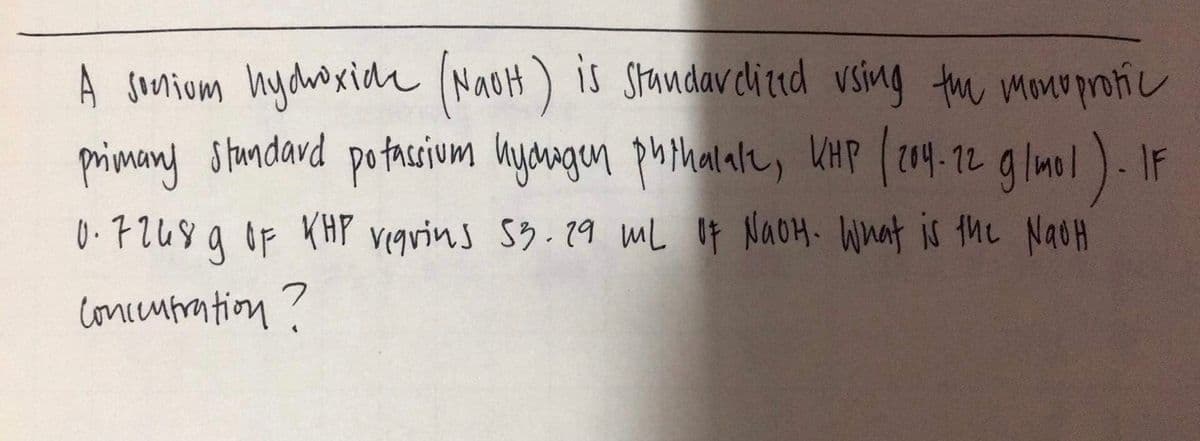 A sodium hydroxide (NaOH) is standardized using the monoprotic
primary standard potassium hydrogen phthalate, KHP (204.22 g/mol). IF
0.7248 g OF KHP requires 53.29 mL OF NaOH. What is the NaOH
concentration?